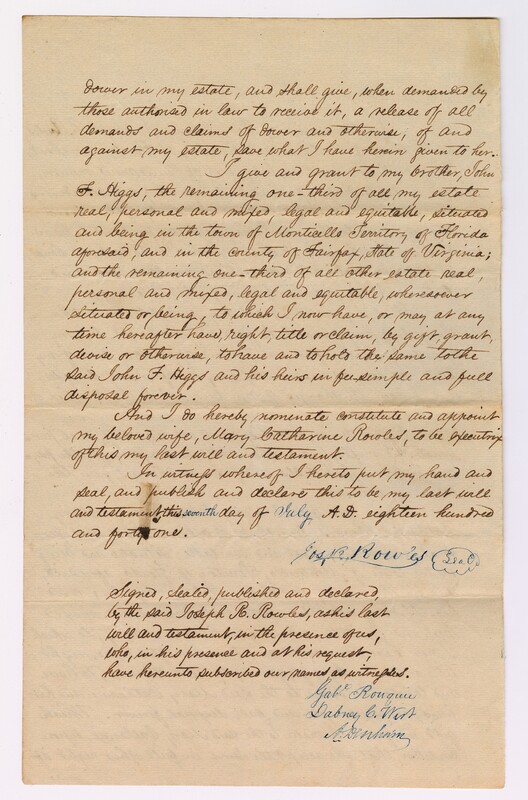 dower in my estate, and shall give, when demanded by
those authorised in law to receive it, a release of all
demands and claims of dower and otherwise, of and
against my estate, save what I have herein given to her.
I give and grant to my brother, John
F. Higgs, the remaining one-third of all my estate
real, personal and mixed, legal and equitable, situated
and being in the town of Monticello Territory of Florida
aforesaid, and in the county of Fairfax, State of Virginia;
and the remaining one-third of all other estate real,
personal and mixed, legal and equitable, wheresoever
situated or being, to which I now have, or may at any
time hereafter have, right, title or claim, by gift, grant,
devise or otherwise, to have and to hold the same to the
said John F. Higgs and his heirs in fee-simple and full
disposal forever.
And I do hereby nominate constitute and appoint
my beloved wife, Mary Catharine Rowles, to be executrix
of this my last will and testament.
In witness whereof I hereto put my hand and
seal, and publish and declare this to be my last will
and testament, this seventh day of July A.D. eighteen hundred
and forty one.
Jos. R. Rowles Seal
Signed, sealed, published and declared,
by the said Joseph R. Rowles, as his last
will and testament, in the presence of us,
who, in his presence and at his request,
have hereunto subscribed our names as witnesses.
Gabl.
Dabney C. West
A. Denham